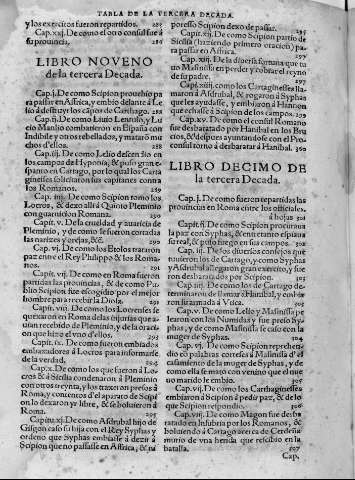 TABLA DE LA TERCERA DECADA.
y los exercitos fueron repartidos. 288
Cap.xxj. De como el otro consul fue a
su prouincia. 288
LIBRO NOVENO
de la tercera Decada.
Cap.j. De como Scipion proueyo pa
ra passar en Affrica, y embio delante a Le
lio a destruyr los cãpos de Carthago.
Cap.ij. De como Lelio
Lucio Manlio combatieron en España con
Indibile y otros rebellados, y mataron mu
chos d'ellos. 288
Cap.iij. De como Lelio
en los campos de Hyponia, & puso grande
espanto en Cartago, por lo qual los Carta
gineses solicitaron sus capitanes contra
los Romanos. 289
Cap.iiij. De como Scipion tomo los
Locros, & dexo alli a Quinto Pleminio
con guarnicion Romana. 290
Capit.v. De la crueldad y auaricia de
Pleminio, y de como le fueron cortadas
las narizes y orejas, &c.
Cap.vj. De como los Etolos trataron
paz entre el Rey Philippo & los Roma
nos.
Capit.vij. De como en Roma fuerõ
partidas las prouincias, & de como Pu
blio Scipion fue escogido por el mejor
hombre para recebir la Diosa.
Capit.viij. De como los Locrenses se
quexaron en Roma delas injurias que a-
uian recebido de Pleminio, y de la oraci-
on que hizo el vno d'ellos. 293
Capit.ix. De como fueron embiados
embaxadores a Locros para informarse
de la verdad.
Cap.x. De como los que fueron a Lo
cros & a Sicilia condenaron a Pleminio
con otros treynta, y los traxeron presos a
Roma, y contentos d'el aparato de Scipi
on lo dexaron yr libre, & se boluieron a
Roma. 295
Capitu.xj. De como Asdrubal hijo de
Gisgon caso su hija con el Rey Syphax y
ordeno que Syphax embiasse a dezir a
Scipion que no passasse en Affrica, & na
poresso Scipion dexo de passar. 295
Capit.xij. De como Scipion partio de
Sicilia (haziendo primero oracion) pa-
ra passar en Affrica.
Cap.xiij. De la diuersa fortuna que tu
uo Masinissa en perder y cobrar el reyno
de su padre.
Cap.xiiij. como los Cartagineses lla-
maron a Asdrubal, & rogaron a Syphax
que les ayudasse, y embiaron a Hannon
que echasse a Scipion de los campos. 299
Cap.xv. De como el consul Romano
fue desbaratado por Hanibal en los Bru
cios, & despues ayuntandose con el Pro-
consul torno a desbaratar a Hanibal. 300
LIBRO DECIMO DE
la tercera Decada.
Cap.j. De como repartidas las pro-
uincias en Roma entre los officiales.
á hojas 301
Capit.ij. De como Scipion procuraua
la paz con Syphax, & entretanto espiaua
su real, & puso fuego en sus campos. 301
Cap.iij. De los diuersos consejos que
tuuieron los de Cartago, y como Syphax
y Asdrubal allegaron gran exercito, y fue
ron desbaratados por Scipion.
Cap.iiij. De como los de Cartago de-
terminaron de llamar a Hanibal, y embia-
ron su armada a Vtica. 303
Cap.v. De como Lelio y Masinissa pe
learon con los Numidas y fue preso Sy-
phax, y de como Masinissa se caso con la
muger de Syphax. 304
Cap.vj. De como Scipion reprehen-
dio cõ palabras corteses a Masinissa d'el
casamiento de la muger de Syphax, y de
como ella se mato con veneno que el nue
uo marido le embio. 305
Cap.vij. De como los Carthagineses
embiaron a Scipion a pedir paz, & de lo
que Scipion respondio. 306
Cap.viij. De como Magon fue desba
ratado en Insubria por los Romanos, &
boluiendo a Cartago acerca de Cerdeña
murio de vna herida que recibio en la
batalla. 307
Cap,